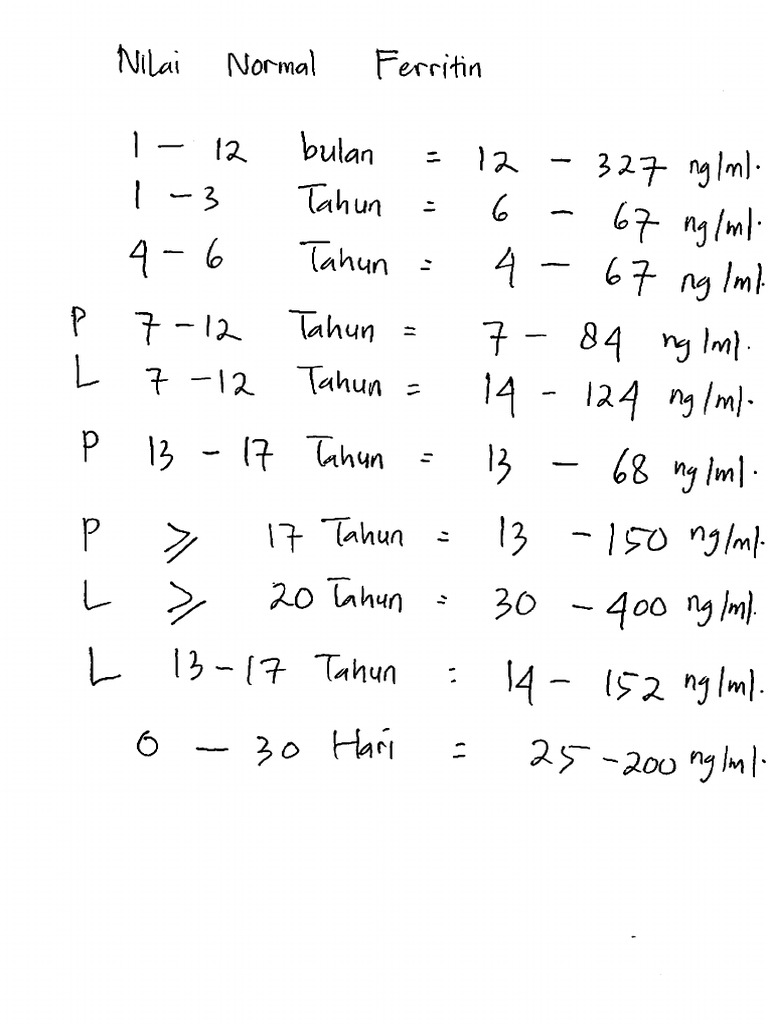 Nilai Normal Ferritin
1 - 12 bulan = 12 - 327 ng/ml.
1 - 3 Tahun = 6 - 67 ng/ml.
4 - 6 Tahun = 4 - 67 ng/ml.
P 7 - 12 Tahun = 7 - 84 ng/ml.
L 7 - 12 Tahun = 14 - 124 ng/ml.
P 13 - 17 Tahun = 13 - 68 ng/ml.
P ≥ 17 Tahun = 13 - 150 ng/ml.
L ≥ 20 Tahun = 30 - 400 ng/ml.
L 13 - 17 Tahun = 14 - 152 ng/ml.
0 - 30 Hari = 25 - 200 ng/ml.